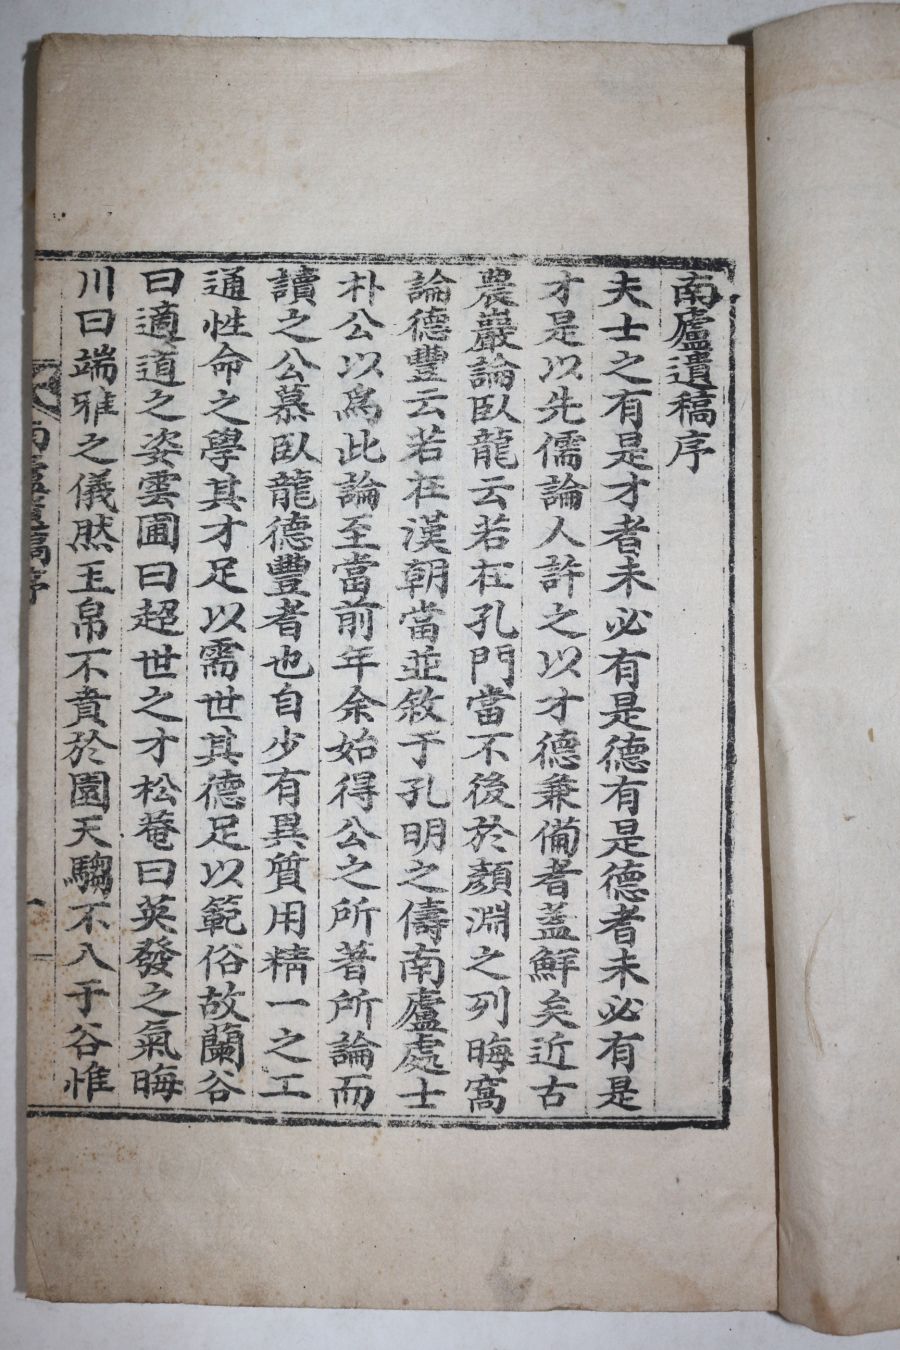 南廬遺稿序
夫士之有是才者未必有是德有是德者未必有是
才是以先儒論人許之以才德兼備者盖鮮矣近古
農巖論臥龍云若在孔門當不後於顏淵之列晦窩
論德豐云若在漢朝當並敘于孔明之儔南廬處士
朴公以爲此論至當前年余始得公之所著所論而
讀之公慕臥龍德豐者也自少有異質用精一之工
通性命之學其才足以需世其德足以範俗故蘭谷
曰適道之姿雲圃曰超世之才松菴曰英發之氣晦
川曰端雅之儀然玉帛不賁於園天騶不入于谷惟
南廬遺稿序
一